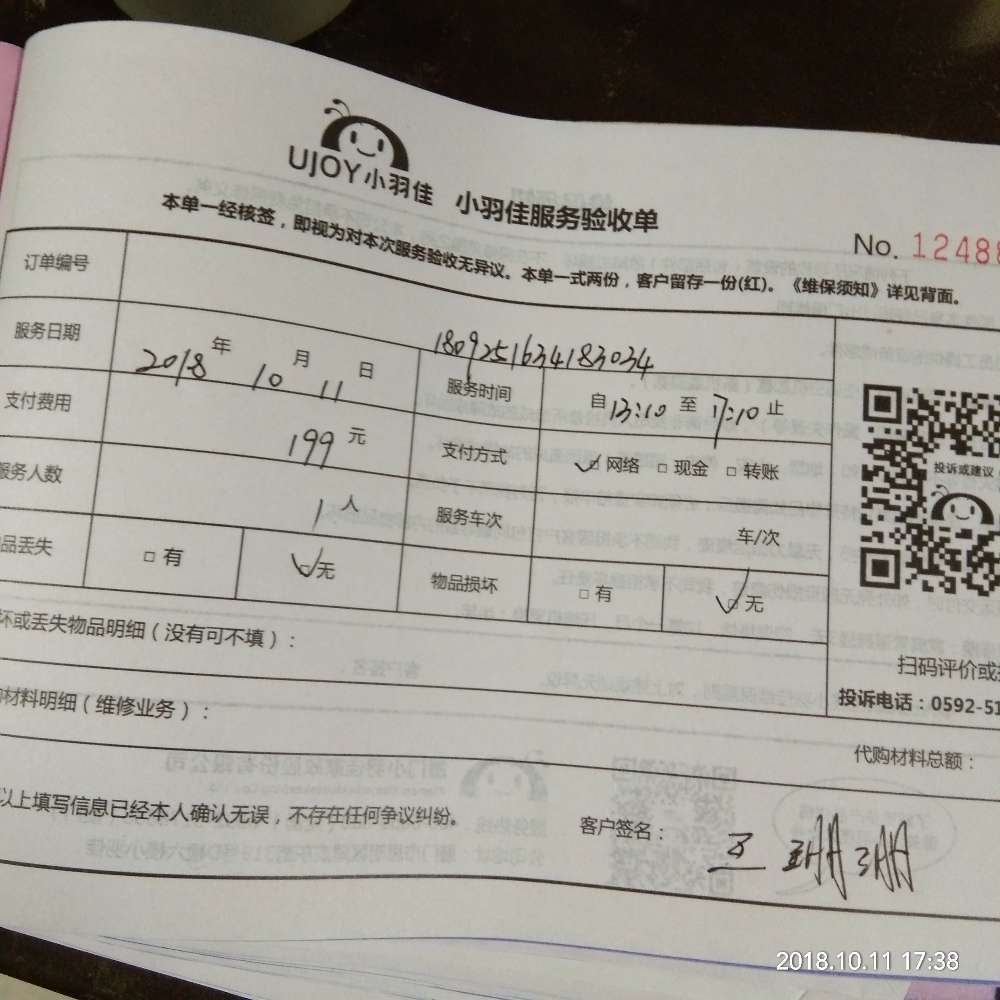 UJOY小羽佳 小羽佳服务验收单
No. 12488
本单一经核签，即视为对本次服务验收无异议。本单一式两份，客户留存一份(红)。《维保须知》详见背面。
订单编号 1809251634183034
服务日期 2018年10月11日 服务时间 自13:10至17:10止
支付费用 199元 支付方式 网络 现金 转账
服务人数 1人 服务车次 车/次
品丢失 有 无 物品损坏 有 无
投诉或建议
坏或丢失物品明细（没有可不填）：
扫码评价或
投诉电话：0592-51
材料明细（维修业务）：
代购材料总额：
以上填写信息已经本人确认无误，不存在任何争议纠纷。
客户签名：
2018.10.11 17:38